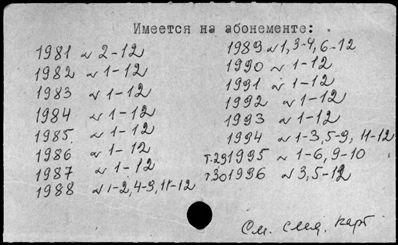 Имеется на абонементе:
1981 № 2-12
1982 № 1-12
1983 № 1-12
1984 № 1-12
1985 № 1-12
1986 № 1-12
1987 № 1-12
1988 № 1-2, 4-9, 11-12
1989 № 1, 3-4, 6-12
1990 № 1-12
1991 № 1-12
1992 № 1-12
1993 № 1-12
1994 № 1-3, 5-9, 11-12
т.29 1995 № 1-6, 9-10
т.30 1996 № 3, 5-12
См. след. карт